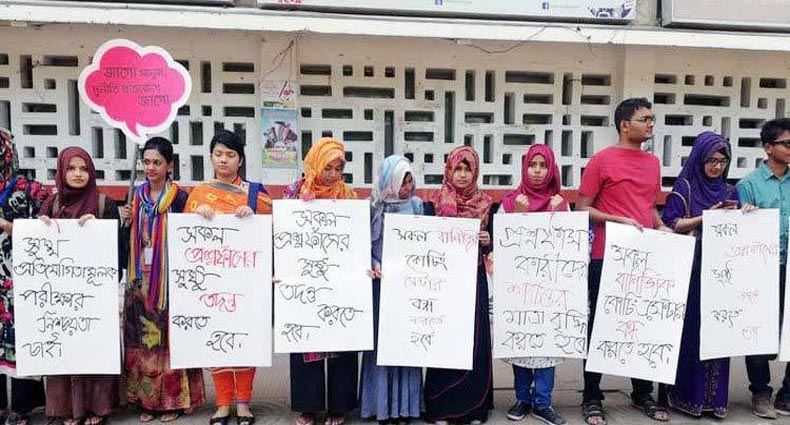 জাগো মানুষ,
দুর্নীতি প্রতিরোধে
জাগো
সুস্থ
প্রতিযোগিতামূলক
পরীক্ষার
নিশ্চয়তা
চাই।
সকল
প্রশ্নফাঁসের
সুষ্ঠু
তদন্ত
করতে
হবে।
সকল
প্রশ্নফাঁসের
সুষ্ঠু
তদন্ত
করতে
হবে।
সকল বানিজ্যিক
কোচিং
সেন্টার
বন্ধ
করতে
হবে
প্রশ্নফাঁস
কারীদের
শাস্তির
মাত্রা বৃদ্ধি
করতে হবে
সকল
বানিজ্যিক
কোচিং সেন্টার
বন্ধ
করতে হবে।
সকল
প্রশ্নফাঁসের
সুষ্ঠু তদন্ত
করতে হবে